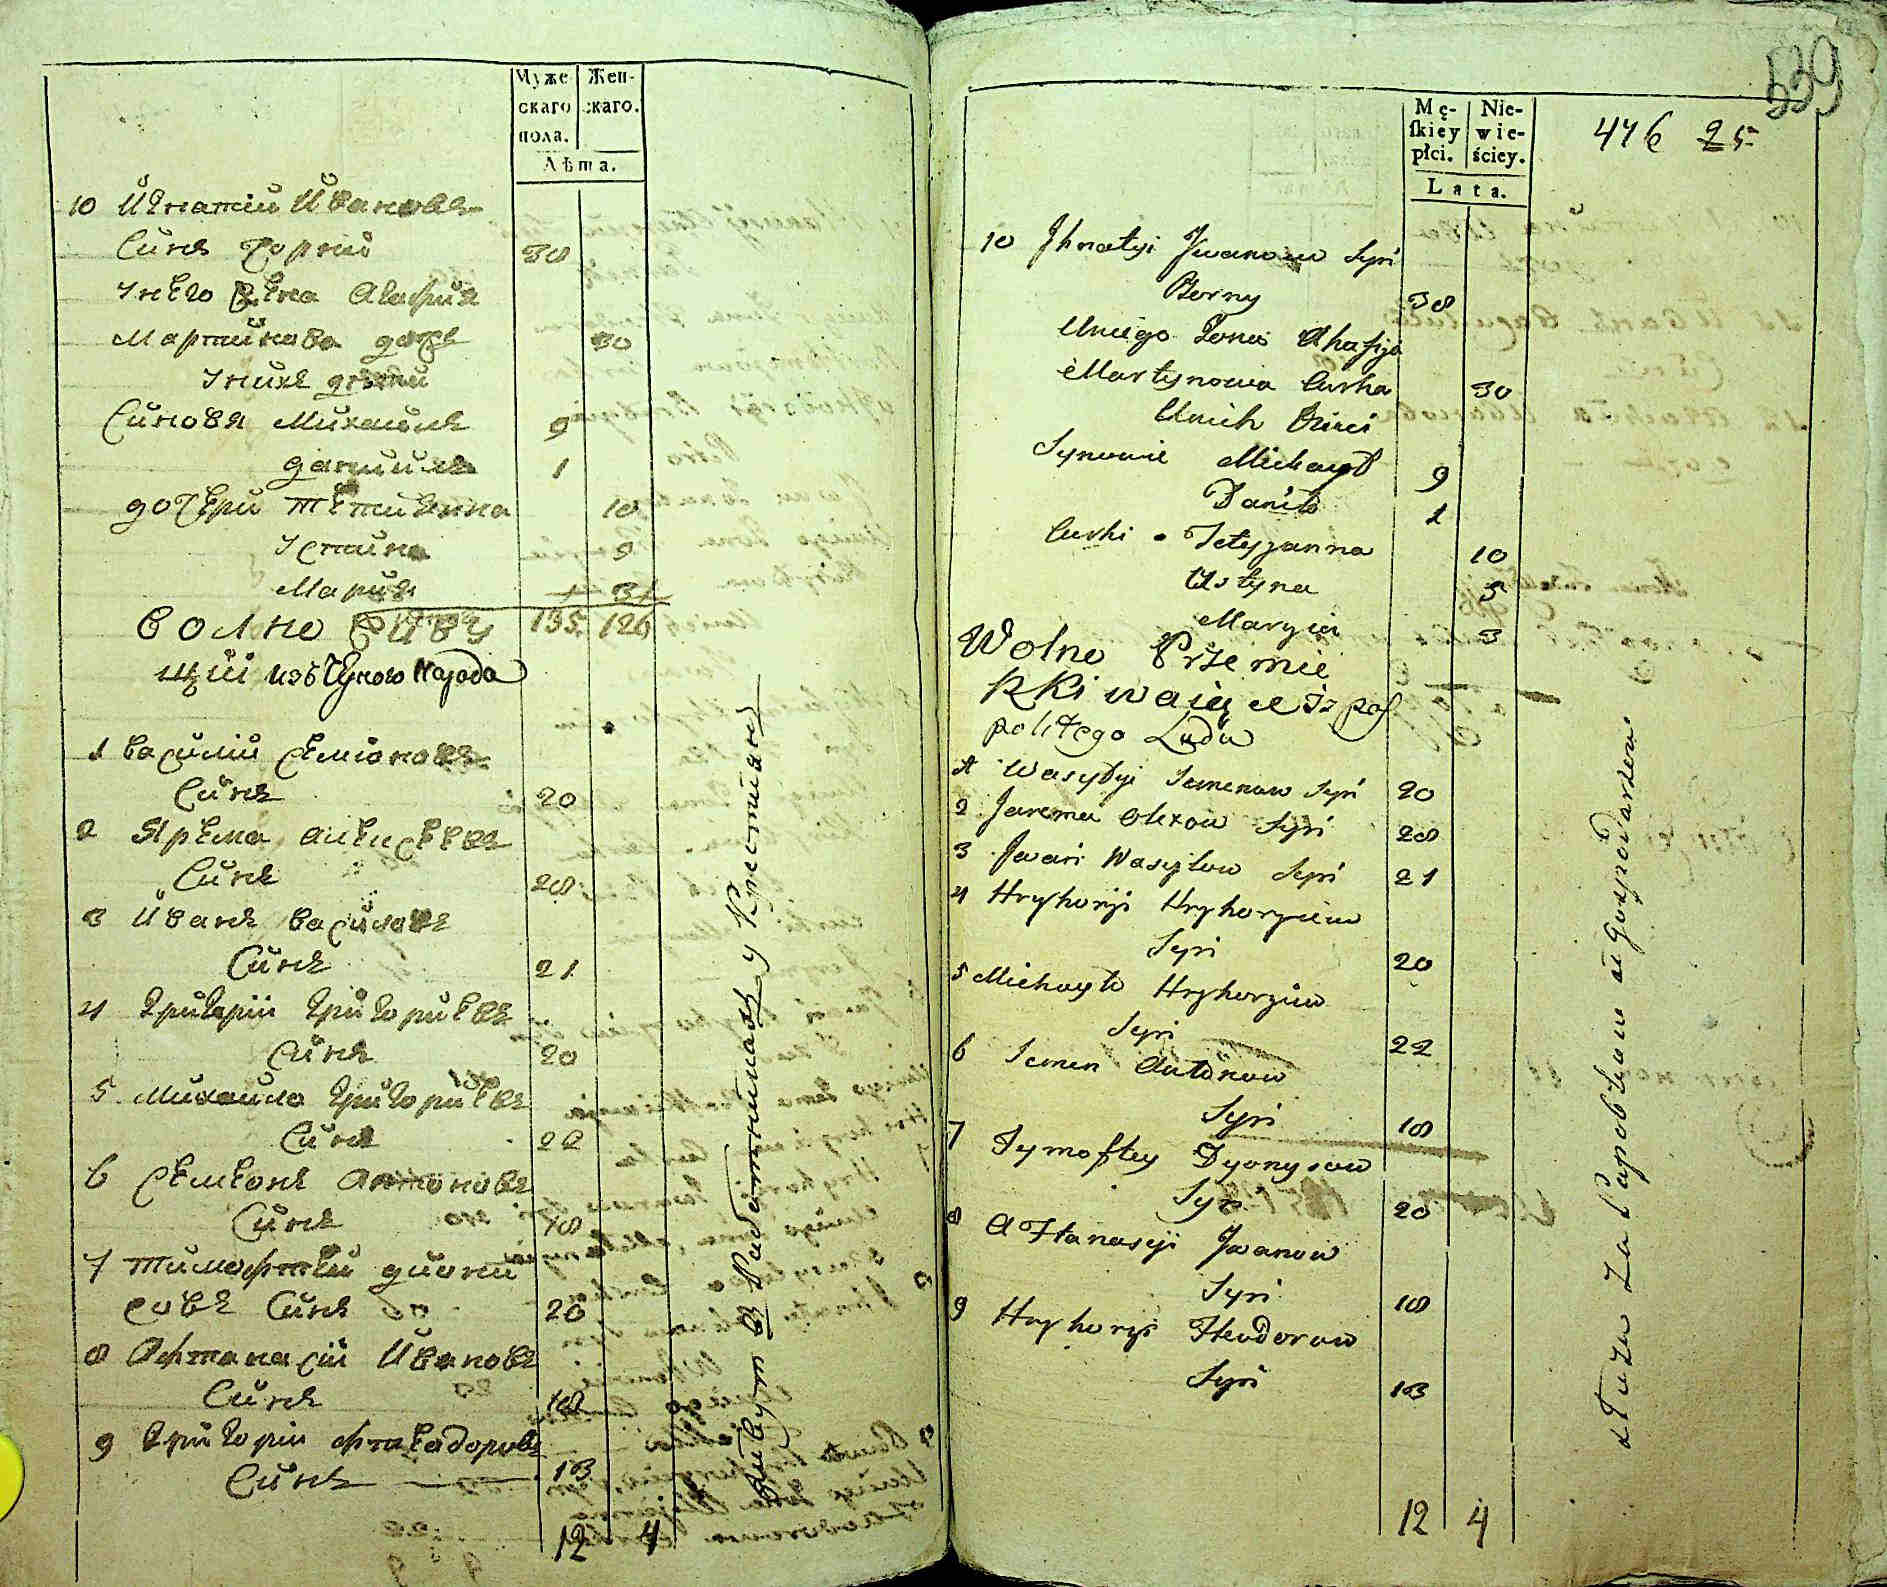 Муже
скаго
пола.
Жен-
скаго.
Лѣта.
10 Игнатій Ивановъ
Синъ Чорній 38
Унего Жена Агафия
Мартинова дочъ 30
Унихъ дѣти
Синовя Михайлъ 9
Данилъ 1
дочери Тетиянна 10
Устина 5
Мария 3
135 126
волно живу
щіи изъ Чорного Народа
1 Василій Семіоновъ
Синъ 20
2 Ярема Алексѣевъ
Синъ 28
3 Иванъ Василовъ
Синъ 21
4 Григорій Григориевъ
Синъ 20
5 Михайло Григориевъ
Синъ 22
6 Семенъ Антоновъ
Синъ 18
7 Тимофтей Диони
совъ Синъ 20
8 Афтанасій Ивановъ
Синъ 18
9 Григорій Фтеадоровъ
Синъ 13
12 4
Живут в Работниках у Крестиянъ
539
446 25
Mę-
ſkiey
płci.
Nie-
wie-
ściey.
Lata.
10 Jhnatyi Jwanow Syn
Czorny 38
Uniego Żona Ahafija
Martynowa Curka 30
Unich Dzieci
Synowie Michayło 9
Daniło 1
Curki Tetyjanna 10
Ustyna 5
Maryia 3
Wolno Przemie
szkiwaiące is pos
politego Ludu
1 Wasylyi Semenow Syn 20
2 Jarema Olexow Syn 28
3 Jwan Wasylow Syn 21
4 Hryhoryi Hryhoryiew
Syn 20
5 Michayło Hryhoryiew
Syn 22
6 Semen Antonow
Syn 18
7 Tymoftey Dyonysow
Syn 20
8 Aftanasyi Jwanow
Syn 18
9 Hryhoryi Fteodorow
Syn 13
12 4
Służu za Parobkow u Gospodarzow